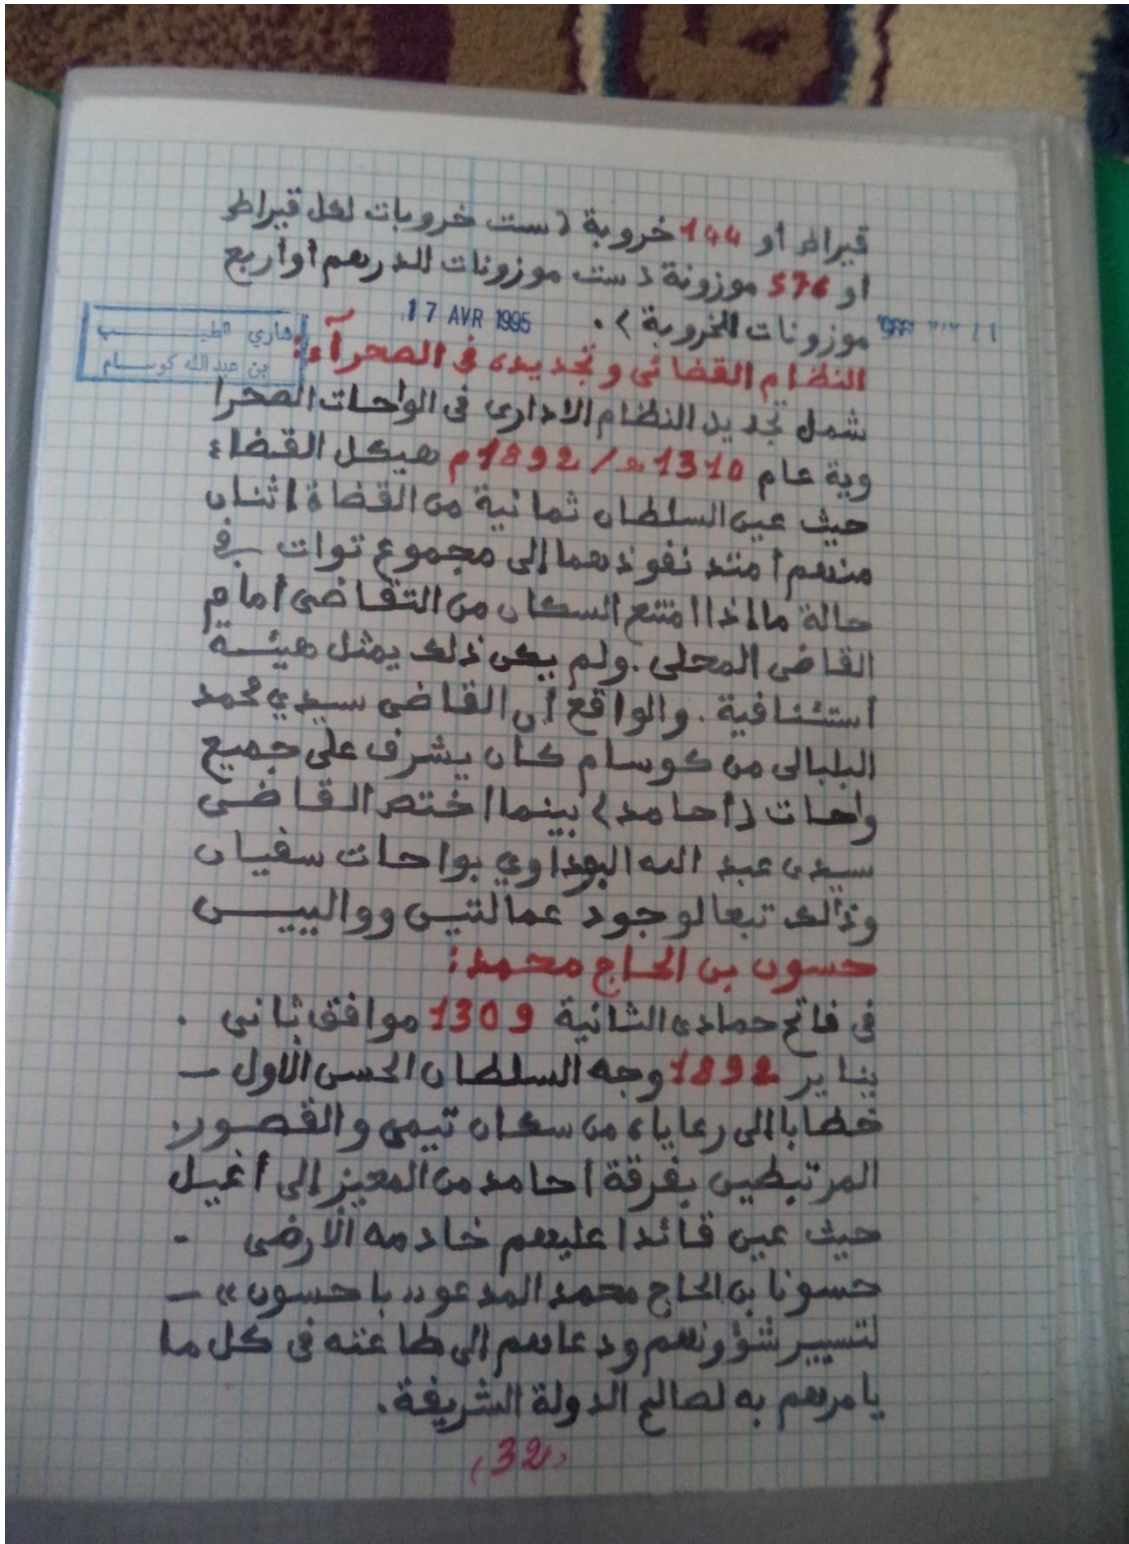 قيراط او 144 خروبة (ست خروبات لكل قيراط
او 576 موزونة (ست موزونات للدرهم أو أربع
موزونات الخروبة).
17 AVR 1995
هاري الطيب
بن عبد الله كوسام
النظام القضائي وتجديده في الصحرآء:
شمل تجديد النظام الاداري في الواحات الصحرا
وية عام 1310 هـ / 1892م هيكل القضاء
حيث عين السلطان ثمانية من القضاة اثنان
منهم أمتد نفوذهما إلى مجموع توات في
حالة ما اذا امتنع السكان من التقاضي أمام
القاضي المحلي. ولم يكن ذلك يمثل هيئة
أستئنافية. والواقع أن القاضي سيدي محمد
البلبالي من كوسام كان يشرف على جميع
واحات (احامد) بينما اختص القاضي
سيدي عبد الله البوداوي بواحات سفيان
وذالك تبعا لوجود عمالتين وواليين
حسون بن الحاج محمد:
في فاتح حمادى الثانية 1309 موافق ثاني .
يناير 1892 وجه السلطان الحسن الأول –
خطابا الى رعاياه من سكان تيمي والقصور.
المرتبطين بفرقة احامد من المعيز إلى أغيل
حيث عين قائدا عليهم خادمه الأرضى -
حسونا بن الحاج محمد المدعو «با حسون» –
لتسيير شؤونهم ودعاهم الى طاعته في كل ما
يامرهم به لصالح الدولة الشريفة.
(32)